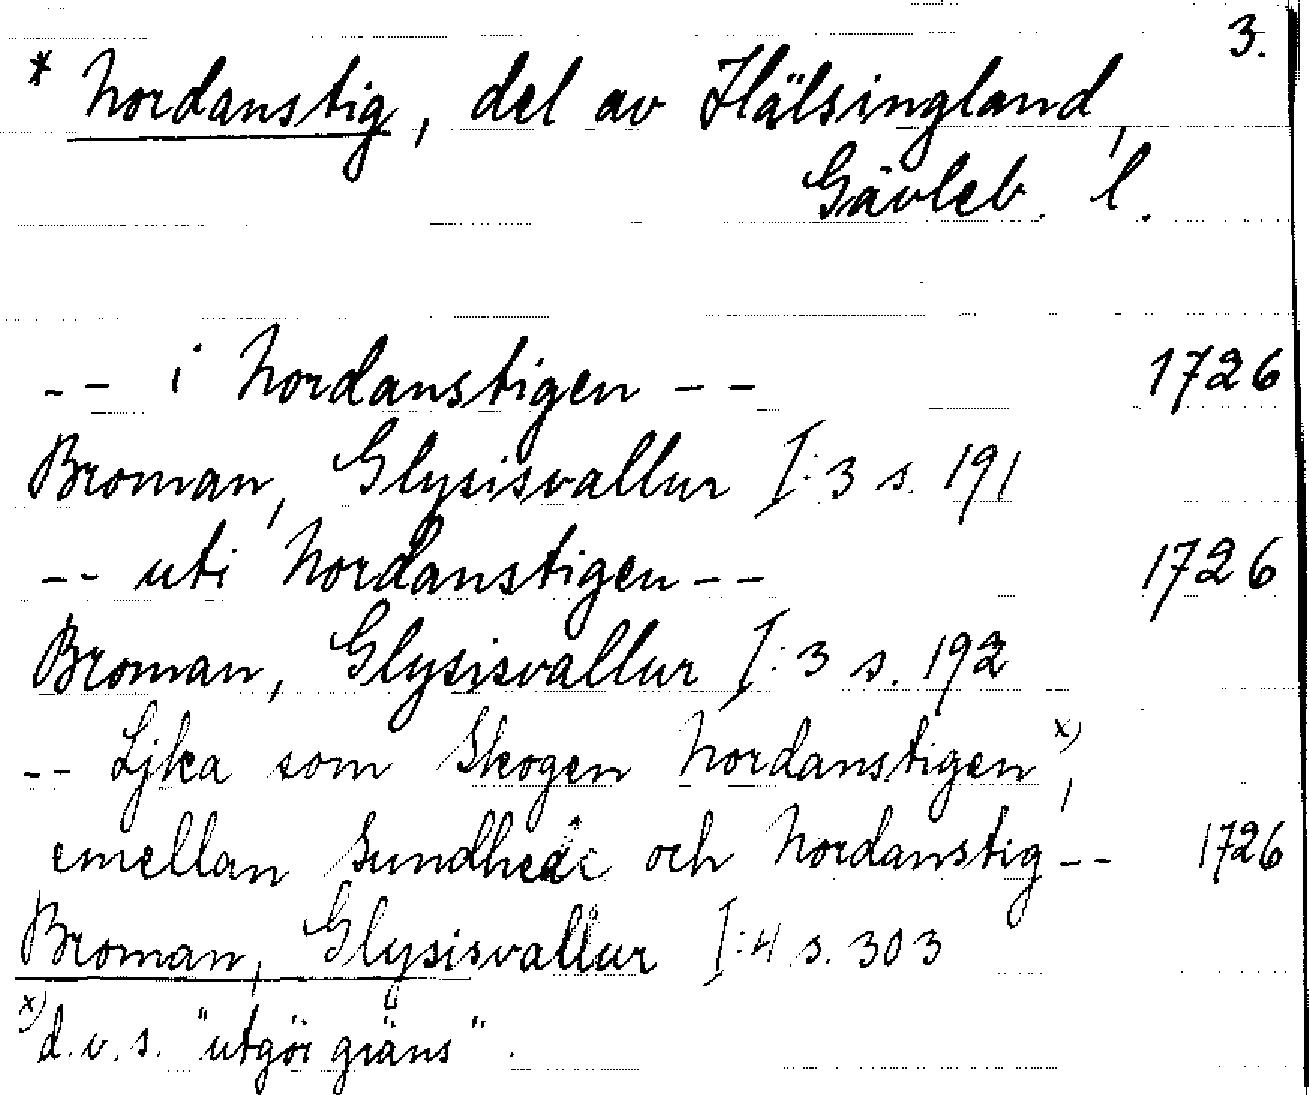 3.
* Nordanstig, del av Hälsingland,
Gävleb. l.
-- i Nordanstigen -- 1726
Broman, Glysisvallur I:3 s. 191
-- uti Nordanstigen -- 1726
Broman, Glysisvallur I:3 s. 192
-- Ljka som Skogen Nordanstigen x),
emellan och Nordanstig -- 1726
Broman, Glysisvallur I:4 s. 303
x) d.v.s. "utgör gräns".